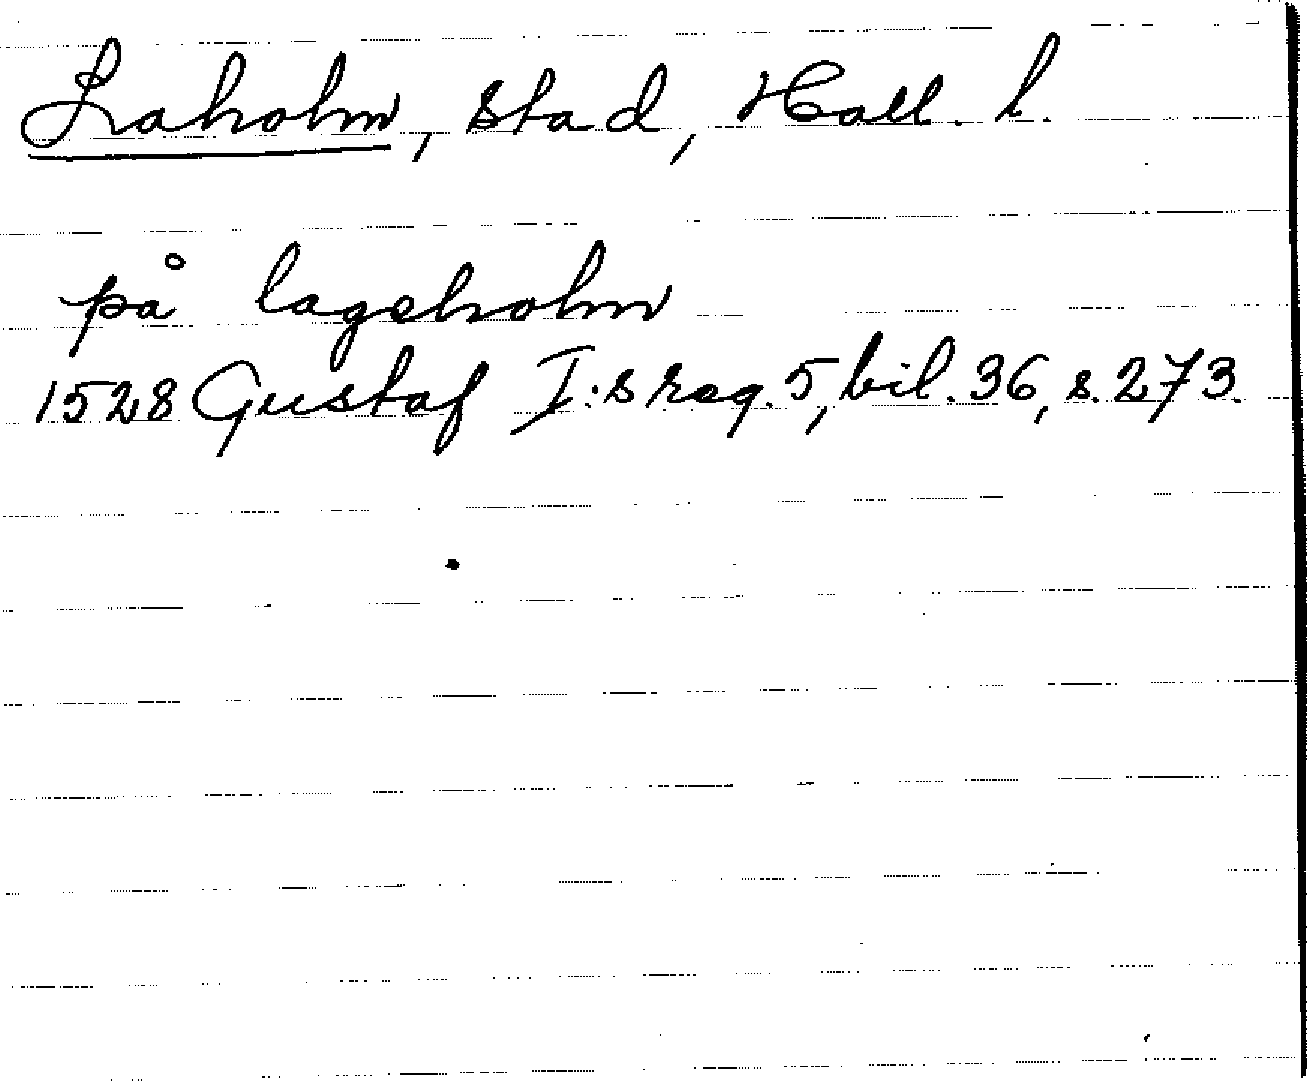 Laholm, stad, Hall. l.
på lageholm
1528 Gustaf I:s reg. 5, bil. 36, s. 273.